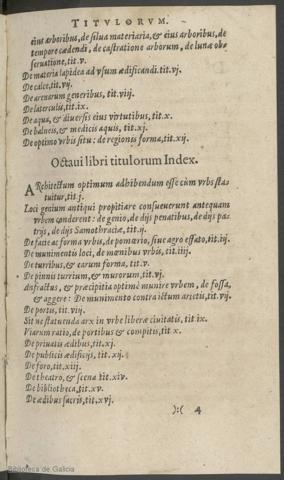 TITVLORVM.
eius arboribus, de silua materiaria, & eius arboribus, de
tempore cædendi, de castratione arborum, de lunæ ob⸗
seruatione, tit. v.
De materia lapidea ad vsum ædificandi. tit. vj.
De calce, tit. vij.
De arenarum generibus, tit. viij.
De laterculis, tit. ix.
De aqua, & diuersis eius virtutibus, tit. x.
De balneis, & medicis aquis, tit. xj.
De optimo vrbis situ: de regionis forma, tit. xij.
Octaui libri titulorum Index.
ARchitectum optimum adhibendum esse cùm vrbs sta⸗
tuitur, tit. j.
Loci genium antiqui propitiare consueuerant antequam
vrbem conderent: de genio, de dijs penatibus, de dijs pa⸗
trijs, de dijs Samothraciæ, tit. ij.
De facie ac forma vrbis, de pomœrio, siue agro effato, tit. iij.
De munimento loci, de mœnibus vrbis, tit. iiij.
De turribus, & earum forma, tit. v.
De pinnis turrium, & murorum, tit. vj.
Anfractus, & præcipitia optimè munire vrbem, de fossa,
& aggere: De munimento contra ictum arietis, tit. vij.
De portis, tit. viij.
Sit ne statuenda arx in vrbe liberæ ciuitatis, tit. ix.
Viarum ratio, de portibus & compitis, tit. x.
De priuatis ædibus, tit. xj.
De publicis ædificijs, tit. xij.
De foro, tit. xiij.
De theatro, & scena tit. xiv.
De bibliotheca, tit. xv.
De ædibus sacris, tit. xvj.
):( 4
Biblioteca de Galicia